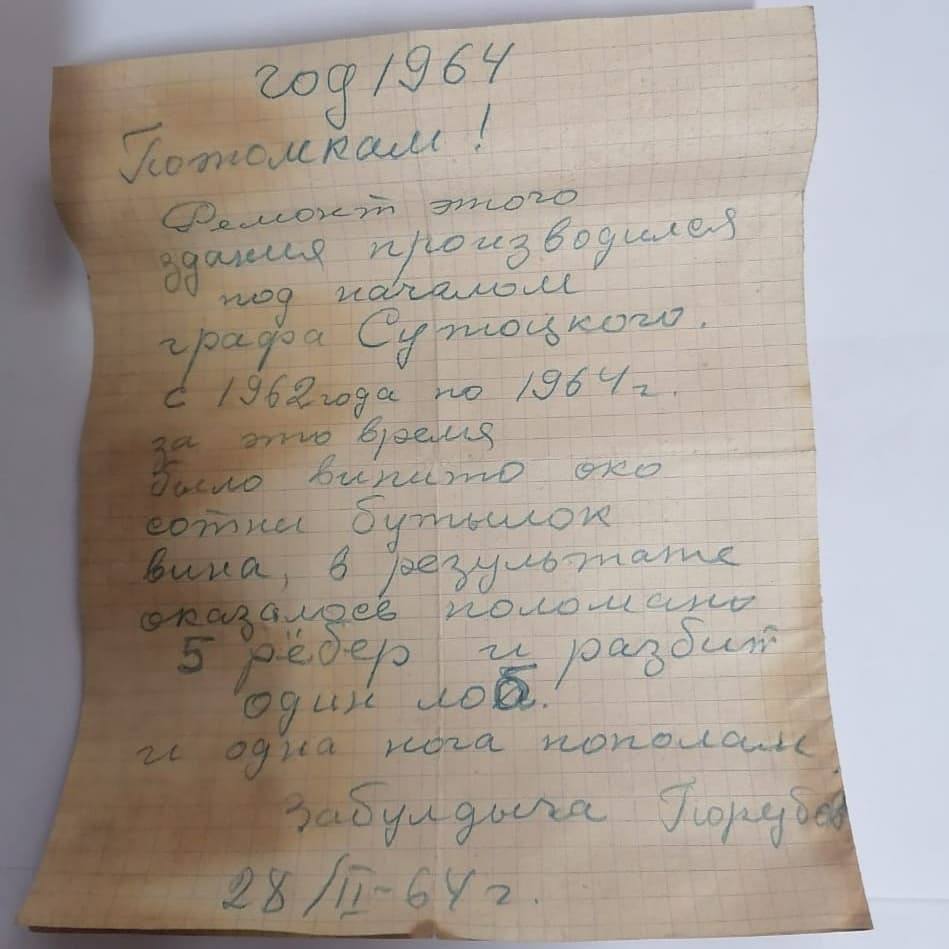 год 1964
Потомкам!
Ремонт этого
здания производился
под началом
графа Сутоцкого.
с 1962 года по 1964 г.
за это время
было випито око
сотни бутылок
вина, в результате
оказалось поломано
5 рёбер и разбит
один лоб.
и одна нога пополам
Забулдыча Порубов
28/II-64 г.